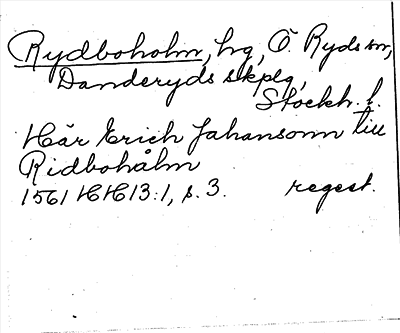 Rydboholm, hg, Ö. Ryds sn,
Danderyds skplg,
Stockh. l.
Här Erich Johansonn till
Ridbohålm
1561 HH 13:1, s. 3. regest.